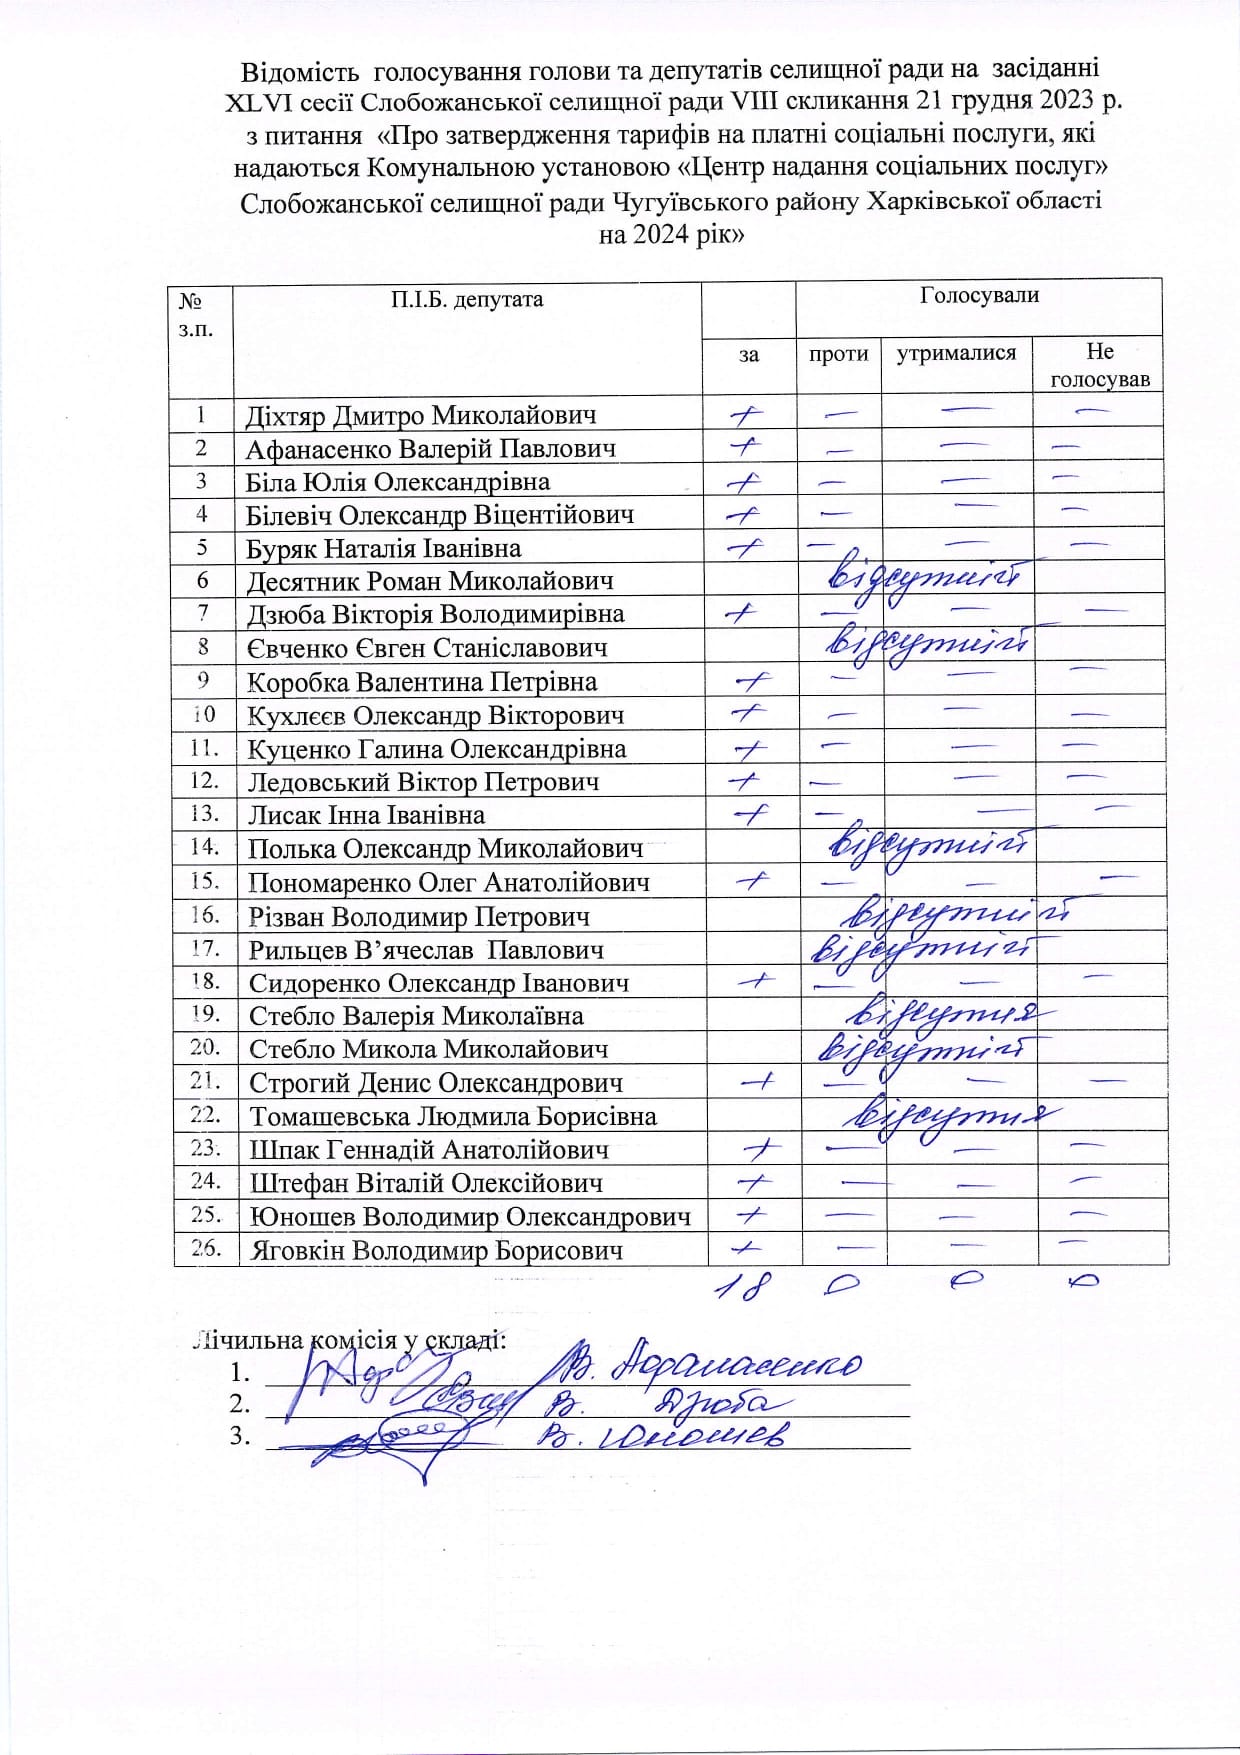 Відомість голосування голови та депутатів селищної ради на засіданні
XLVI сесії Слобожанської селищної ради VIII скликання 21 грудня 2023 р.
з питання «Про затвердження тарифів на платні соціальні послуги, які
надаються Комунальною установою «Центр надання соціальних послуг»
Слобожанської селищної ради Чугуївського району Харківської області
на 2024 рік»
№ з.п. П.І.Б. депутата Голосували
за проти утрималися Не голосував
1 Діхтяр Дмитро Миколайович + — — —
2 Афанасенко Валерій Павлович + — — —
3 Біла Юлія Олександрівна + — — —
4 Білевіч Олександр Віцентійович + — — —
5 Буряк Наталія Іванівна + — — —
6 Десятник Роман Миколайович відсутній
7 Дзюба Вікторія Володимирівна + — — —
8 Євченко Євген Станіславович відсутній
9 Коробка Валентина Петрівна + — — —
10 Кухлєєв Олександр Вікторович + — — —
11. Куценко Галина Олександрівна + — — —
12. Ледовський Віктор Петрович + — — —
13. Лисак Інна Іванівна + — — —
14. Полька Олександр Миколайович відсутній
15. Пономаренко Олег Анатолійович + — — —
16. Різван Володимир Петрович відсутній
17. Рильцев В’ячеслав Павлович відсутній
18. Сидоренко Олександр Іванович + — — —
19. Стебло Валерія Миколаївна відсутня
20. Стебло Микола Миколайович відсутній
21. Строгий Денис Олександрович + — — —
22. Томашевська Людмила Борисівна відсутня
23. Шпак Геннадій Анатолійович + — — —
24. Штефан Віталій Олексійович + — — —
25. Юношев Володимир Олександрович + — — —
26. Яговкін Володимир Борисович + — — —
18 0 0 0
Лічильна комісія у складі:
1. В. Афанасенко
2. В. Дзюба
3. В. Юношев